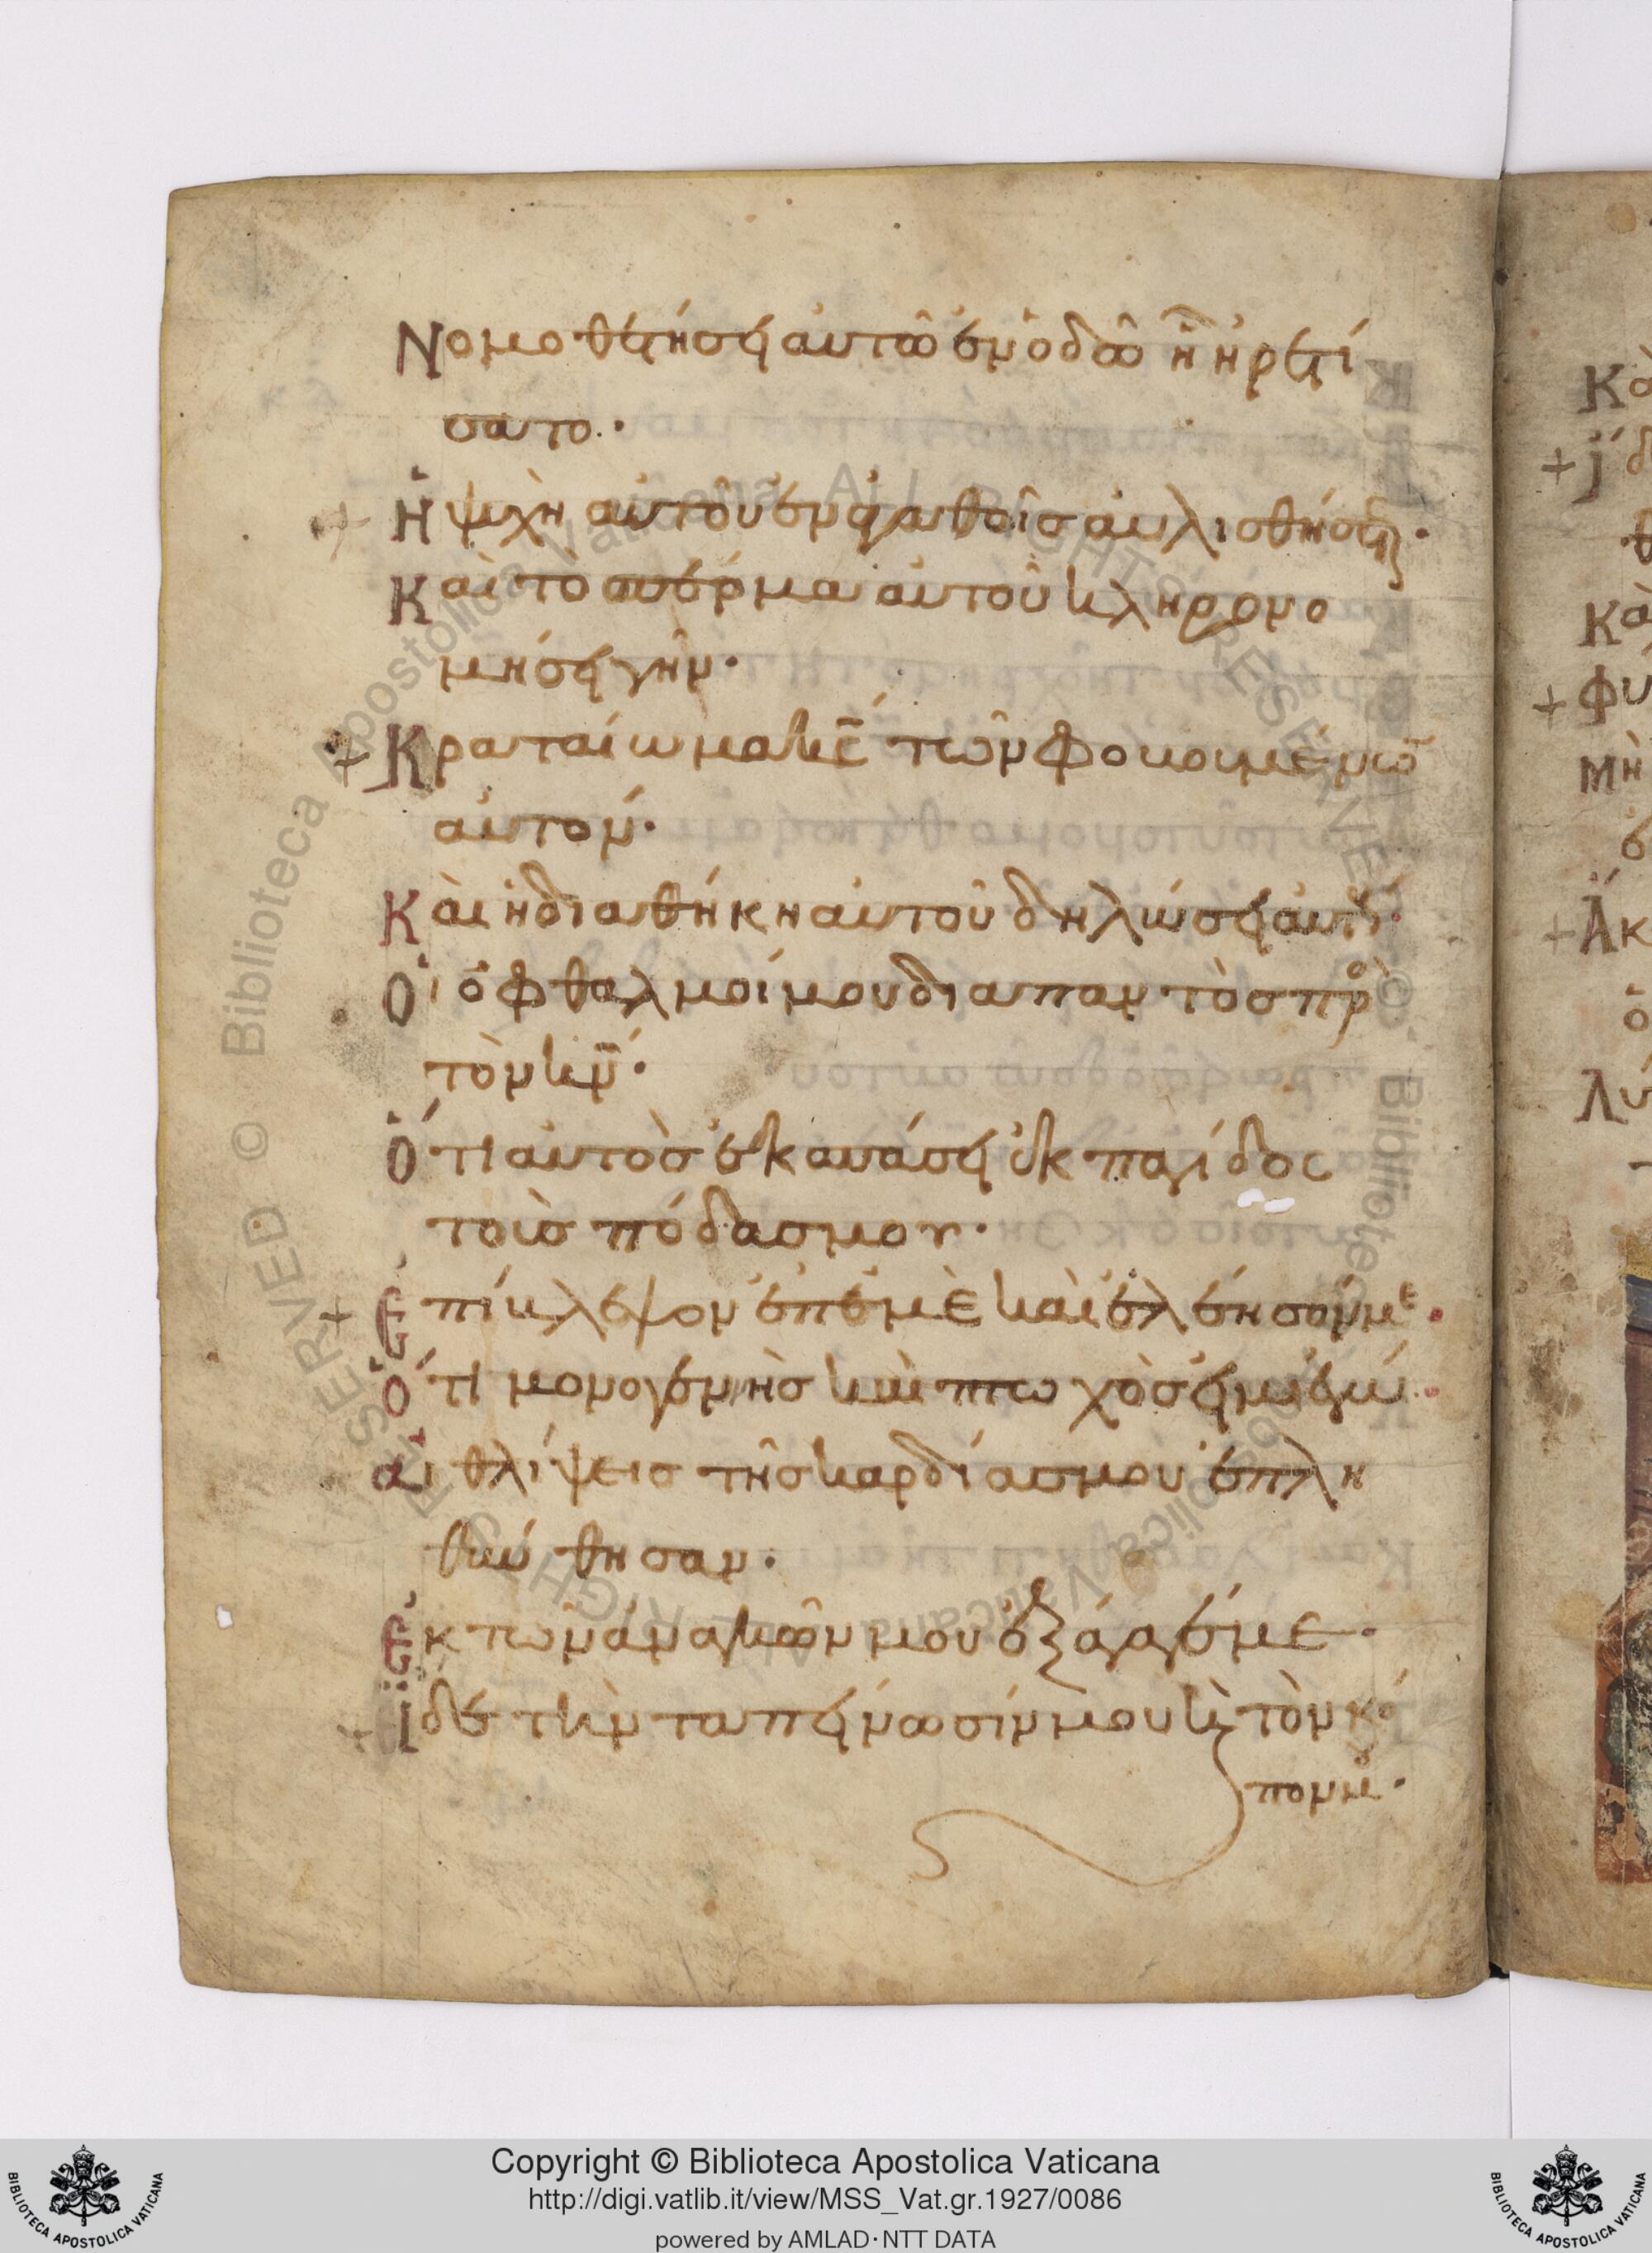 Νομοθετήσει αυτῶ ἐν ὁδῶ ἧ ἡρετί
σατο.
Ἡ ψυχὴ αὐτοῦ ἐν ἀγαθοῖς αὐλισθήσεται·
Καὶ τὸ σπέρμα αὐτοῦ κληρονο
μήσει γῆν·
+ Κραταίωμα κ̅ς̅ τῶν φοβουμένω̅
αὐτόν·
Κὰι ἡ διαθήκη αὐτοῦ δηλώσει αὐτοῖς·
Οἱ ὀφθαλμοί μου διαπαντὸς πρὸ
τὸν κ̅ν̅·
Ὅτι αὐτὸς ἐκσπάσει ἐκ παγίδος
τοὺς πόδας μου·
+ Ἐπίβλεψον ἐπ ἐμὲ καὶ ἐλέησόν με·
Ὅτι μονογενὴς καὶ πτωχὸς εἰμὶ ἐγώ·
Αἱ θλίψεις τῆς καρδίας μου ἐπλη
θύνθησαν·
Ἐκ τῶν ἀναγκῶν μου ἐξάγαγέ με·
+ Ἰδὲ τὴν ταπείνωσίν μου κ̀ τὸν κό
πον μ̊·
Κὰ
+ Ἰδ
θ
Κὰ
+ Φυ
Μὴ
ἐ
+ Ἀκ
ὁ
Λύ
Copyright © Biblioteca Apostolica Vaticana
http://digi.vatlib.it/view/MSS_Vat.gr.1927/0086
powered by AMLAD·NTT DATA
BIBLIOTECA APOSTOLICA VATICANA
BIBLIOTECA APOSTOLICA VATICANA